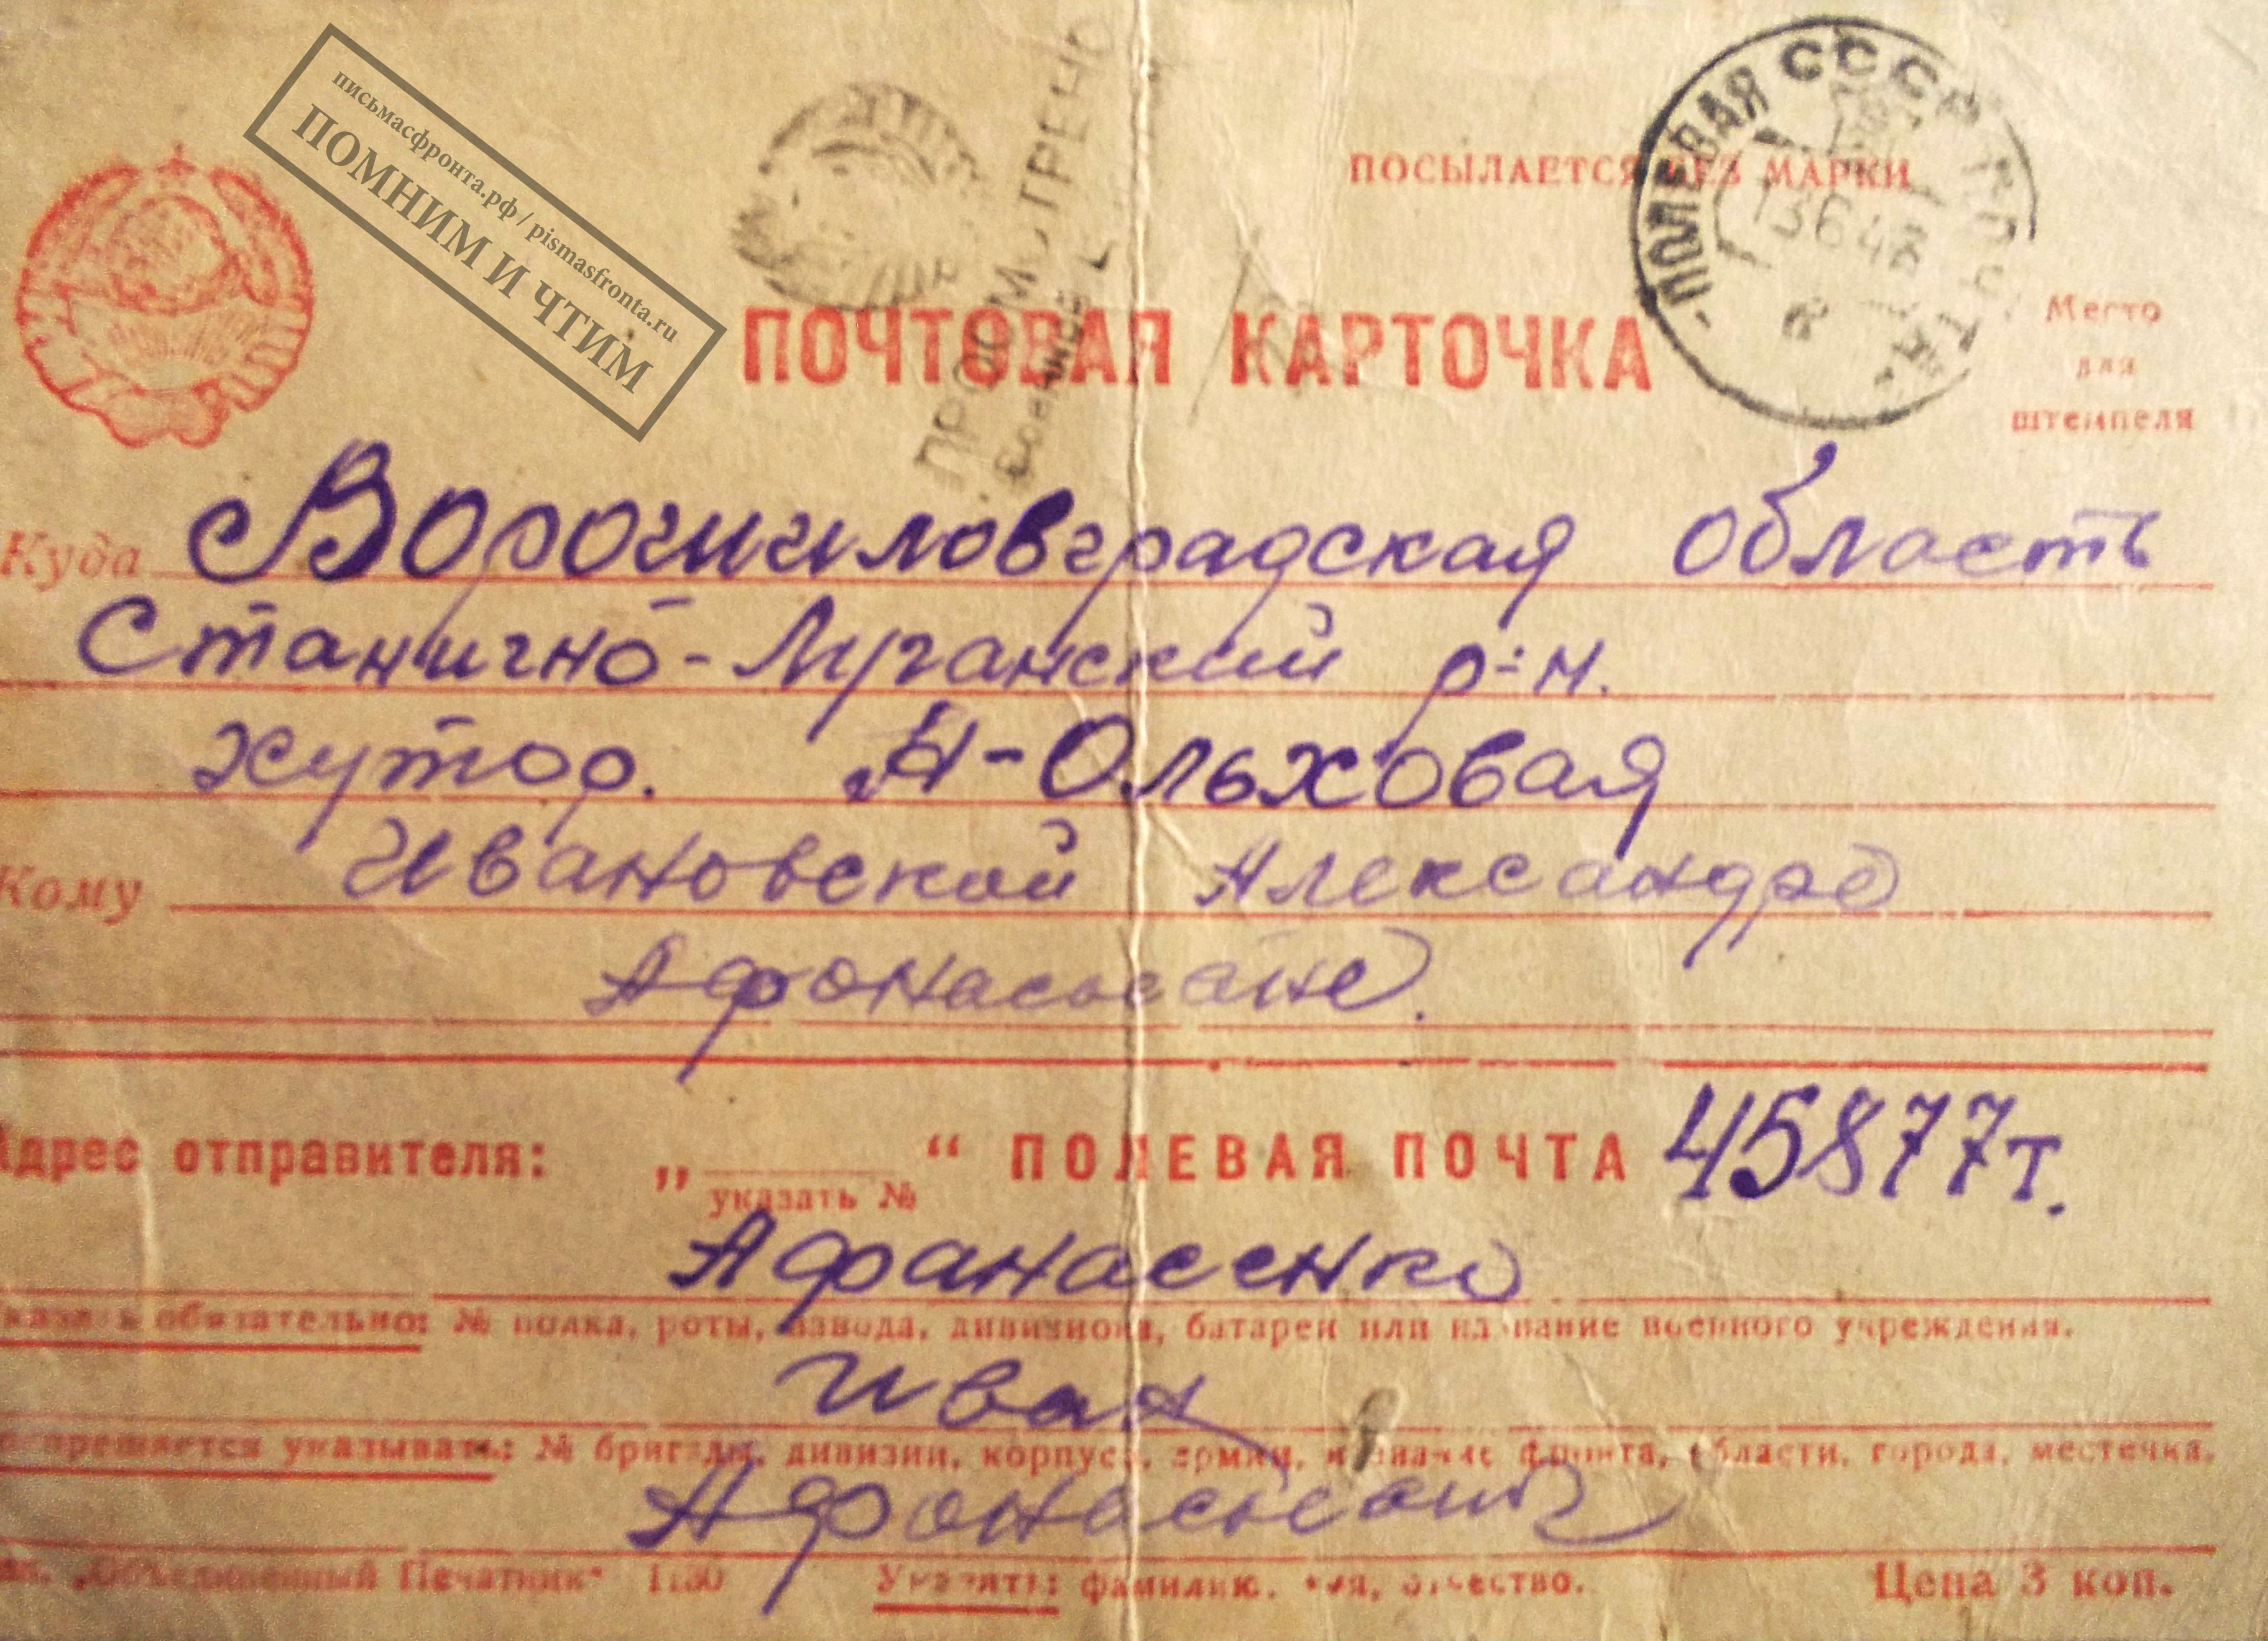 письмасфронта.рф / pismasfronta.ru
ПОМНИМ И ЧТИМ
ПРОСМОТРЕНО
ПОСЫЛАЕТСЯ БЕЗ МАРКИ
ПОЛЕВАЯ СССР ПОЧТА
13 6 43
ПОЧТОВАЯ КАРТОЧКА
Место
для
штемпеля
Куда Ворошиловградская область
Станично-Луганский р-н.
хутор. Н-Ольховая
Кому Ивановской Александре
Афонасьевне.
Адрес отправителя: „ “ ПОЛЕВАЯ ПОЧТА 45877т.
указать №
Афанасенко
Указать обязательно: № полка, роты, взвода, дивизиона, батареи или название военного учреждения.
Иван
Запрещается указывать: № бригады, дивизии, корпуса, армии, название фронта, области, города, местечка.
Афонасьевич
„Объединенный Печатник“ 1130 Указать: фамилию, имя, отчество. Цена 3 коп.